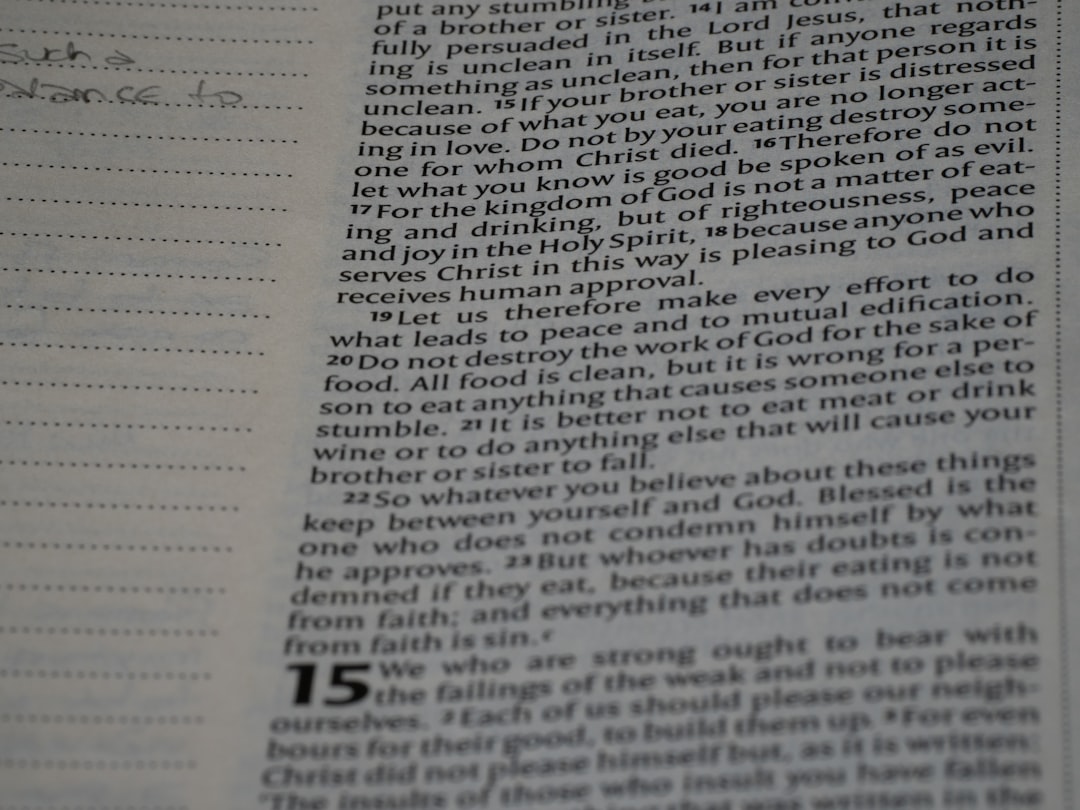 such a
to
put any stumbling
of a brother or sister. 14 I am
fully persuaded in the Lord Jesus, that noth-
ing is unclean in itself. But if anyone regards
something as unclean, then for that person it is
unclean. 15 If your brother or sister is distressed
because of what you eat, you are no longer act-
ing in love. Do not by your eating destroy some-
one for whom Christ died. 16 Therefore do not
let what you know is good be spoken of as evil.
17 For the kingdom of God is not a matter of eat-
ing and drinking, but of righteousness, peace
and joy in the Holy Spirit, 18 because anyone who
serves Christ in this way is pleasing to God and
receives human approval.
19 Let us therefore make every effort to do
what leads to peace and to mutual edification.
20 Do not destroy the work of God for the sake of
food. All food is clean, but it is wrong for a per-
son to eat anything that causes someone else to
stumble. 21 It is better not to eat meat or drink
wine or to do anything else that will cause your
brother or sister to fall.
22 So whatever you believe about these things
keep between yourself and God. Blessed is the
one who does not condemn himself by what
he approves. 23 But whoever has doubts is con-
demned if they eat, because their eating is not
from faith; and everything that does not come
from faith is sin. c
15 We who are strong ought to bear with
the failings of the weak and not to please
ourselves. 2 Each of us should please our neigh-
bours for their good, to build them up. 3 For even
Christ did not please himself but, as it is written:
'The insults of those who insult you have fallen
that was written in the